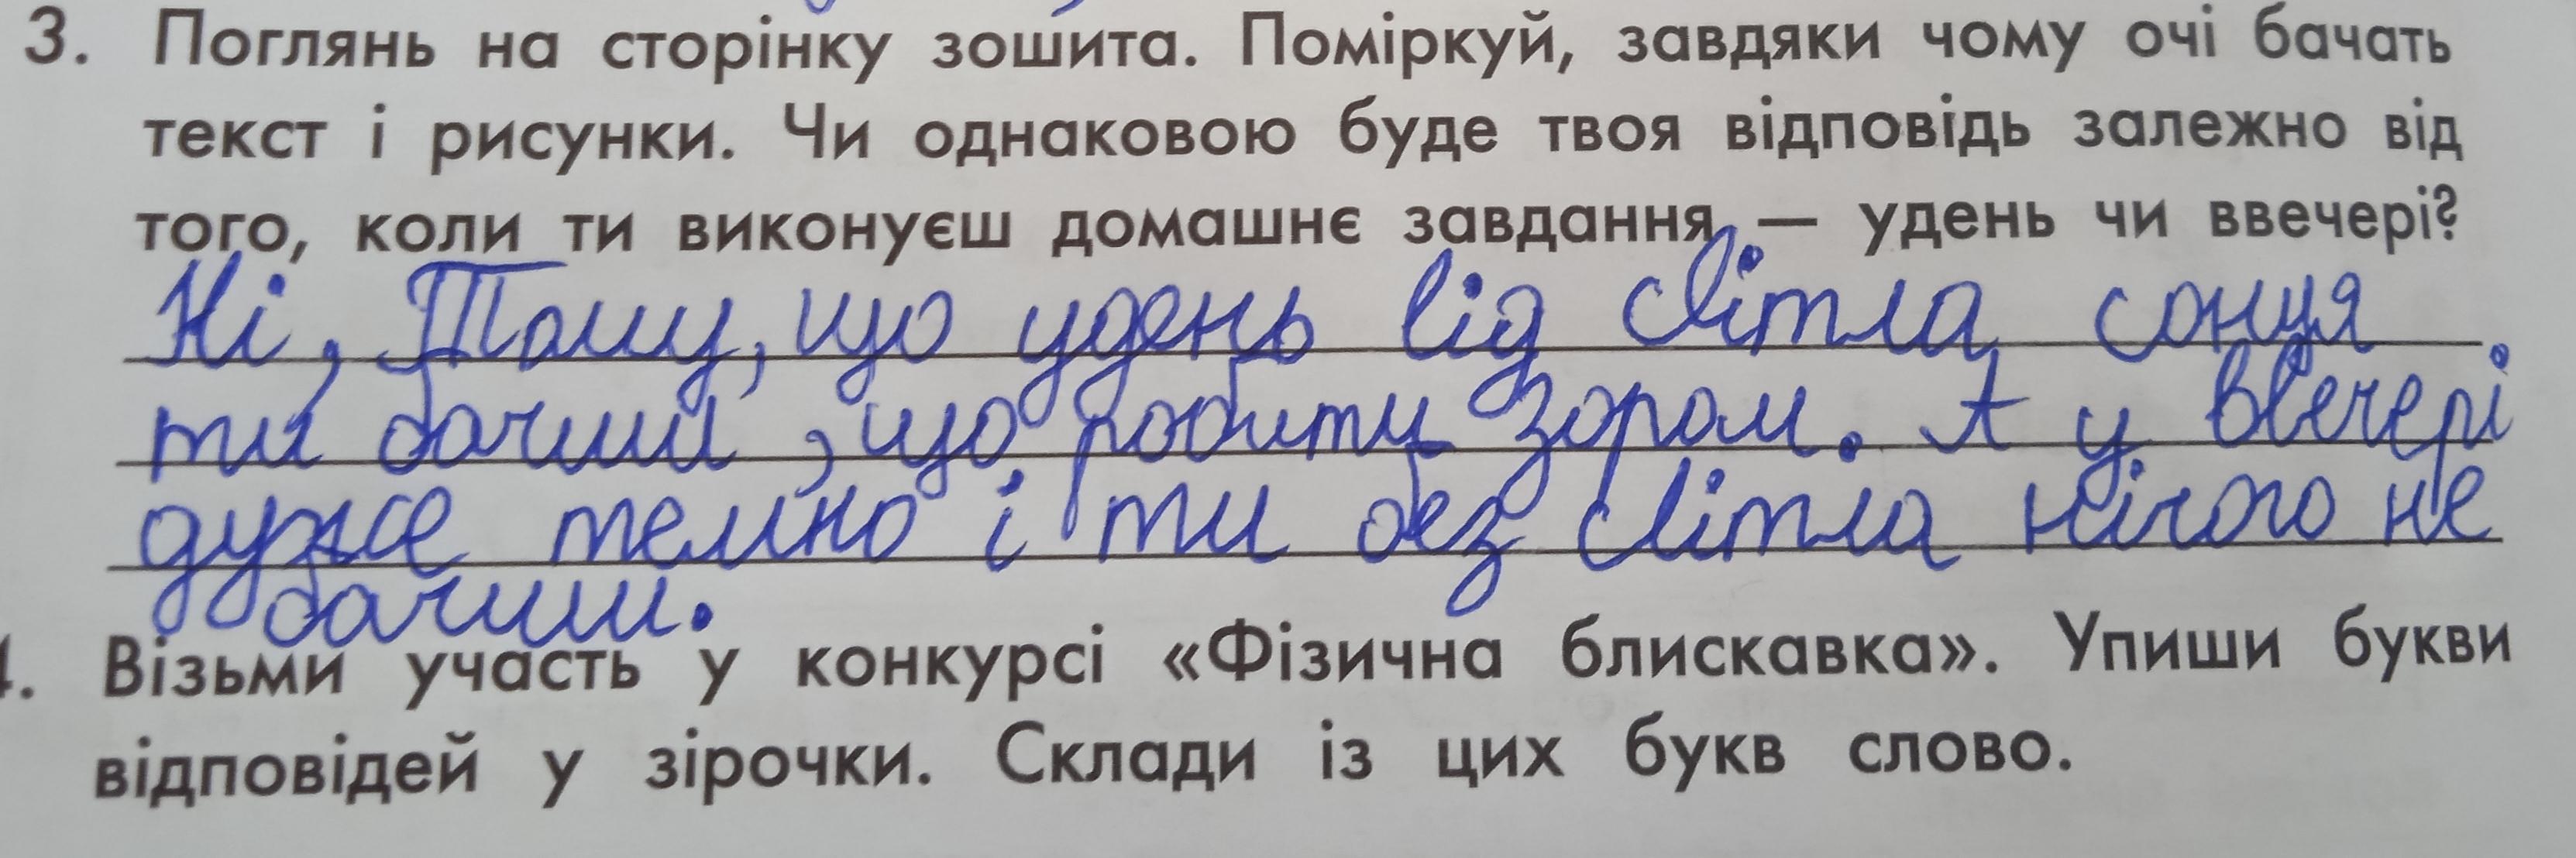 3. Поглянь на сторінку зошита. Поміркуй, завдяки чому очі бачать
текст і рисунки. Чи однаковою буде твоя відповідь залежно від
того, коли ти виконуєш домашнє завдання, — удень чи ввечері?
Ні, Тому, що удень від світла сонця
ти бачиш, що робити зором. А у ввечері
дуже темно і ти без світла нічого не
бачиш.
4. Візьми участь у конкурсі «Фізична блискавка». Упиши букви
відповідей у зірочки. Склади із цих букв слово.